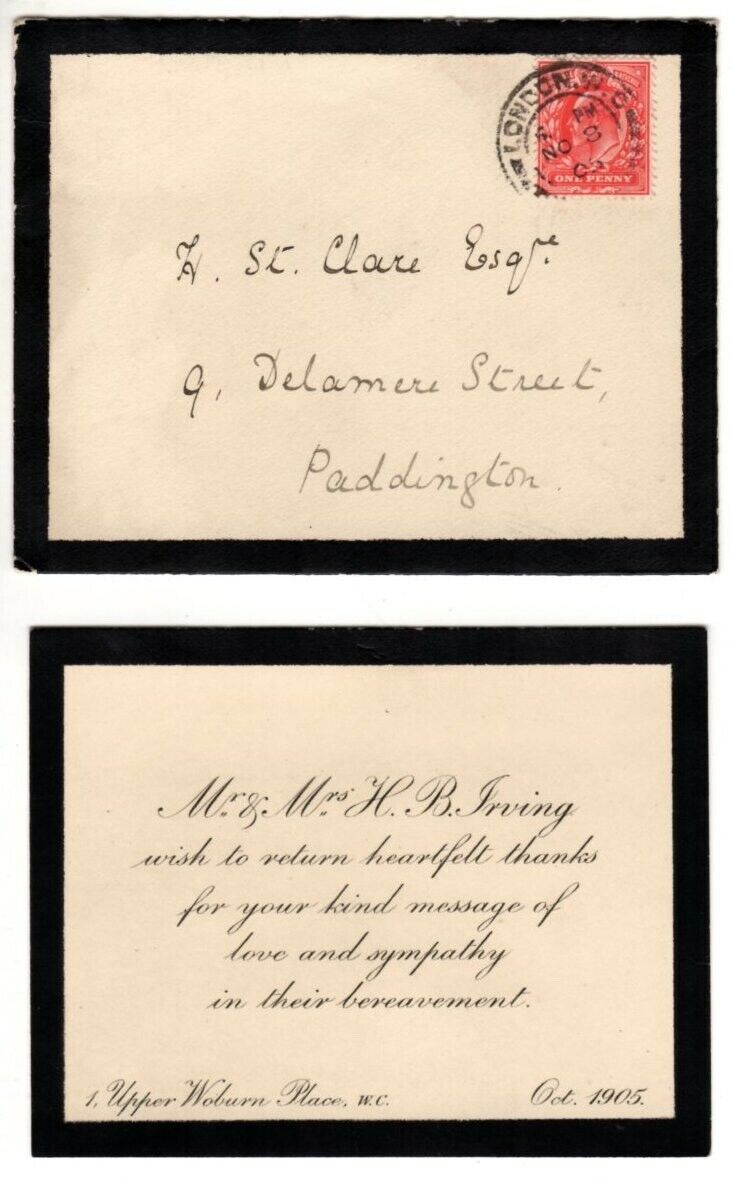 LONDON. W.C.
PM
NO 8
05
ONE PENNY
H. St. Clare Esqre
9, Delamere Street,
Paddington.
Mr. & Mrs. H. B. Irving
wish to return heartfelt thanks
for your kind message of
love and sympathy
in their bereavement.
1, Upper Woburn Place, W.C. Oct. 1905.